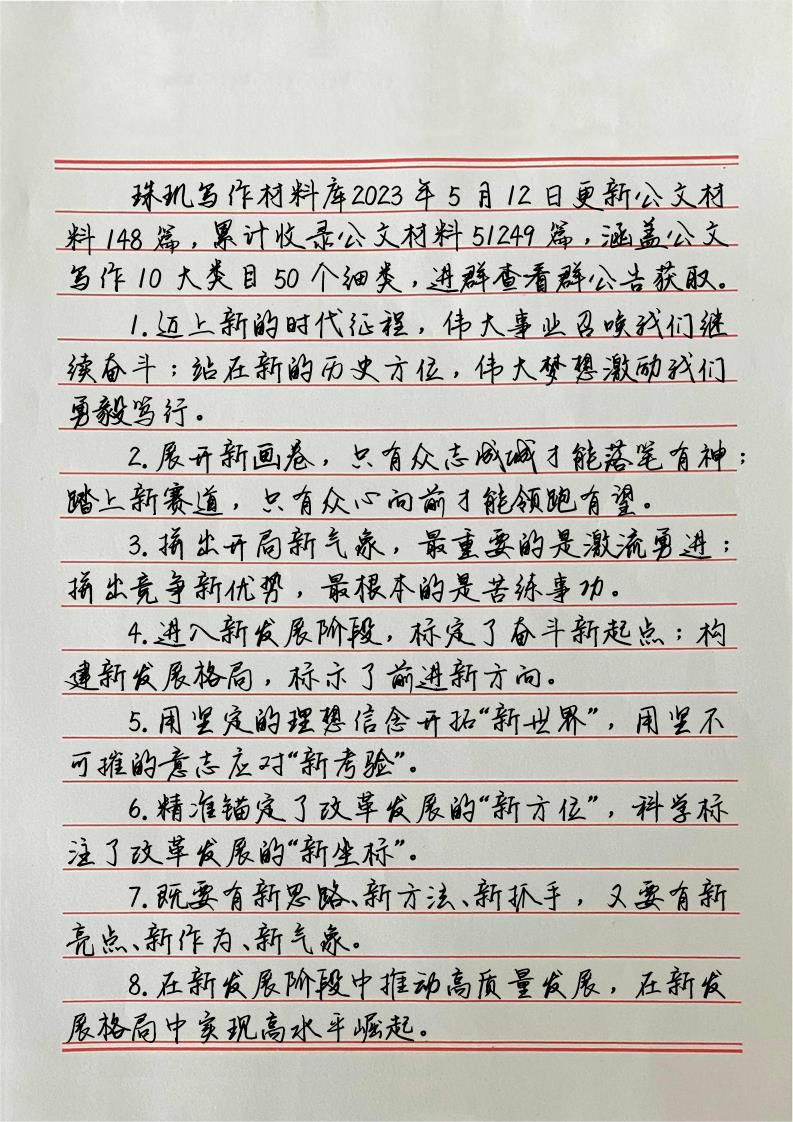 珠玑写作材料库2023年5月12日更新公文材
料148篇，累计收录公文材料51249篇，涵盖公文
写作10大类目50个细类，进群查看群公告获取。
1.迈上新的时代征程，伟大事业召唤我们继
续奋斗；站在新的历史方位，伟大梦想激励我们
勇毅笃行。
2.展开新画卷，只有众志成城才能落笔有神；
踏上新赛道，只有众心向前才能领跑有望。
3.拼出开局新气象，最重要的是激流勇进；
拼出竞争新优势，最根本的是苦练事功。
4.进入新发展阶段，标定了奋斗新起点；构
建新发展格局，标示了前进新方向。
5.用坚定的理想信念开拓“新世界”，用坚不
可摧的意志应对“新考验”。
6.精准锚定了改革发展的“新方位”，科学标
注了改革发展的“新坐标”。
7.既要有新思路、新方法、新抓手，又要有新
亮点、新作为、新气象。
8.在新发展阶段中推动高质量发展，在新发
展格局中实现高水平崛起。